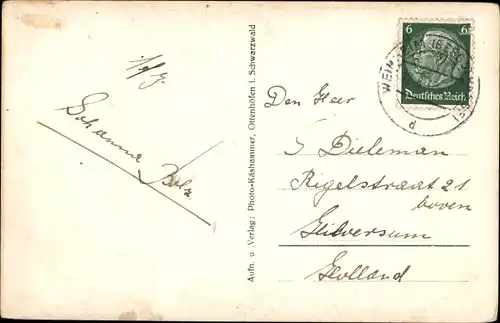 Johanna Bolz
Aufn. u. Verlag: Photo-Käshammer, Ottenhöfen i. Schwarzwald
6 6
Deutsches Reich
WEINHEIM
d
Den Heer
J Dieleman
Rigelstraat 21
boven
Hilversum
Holland